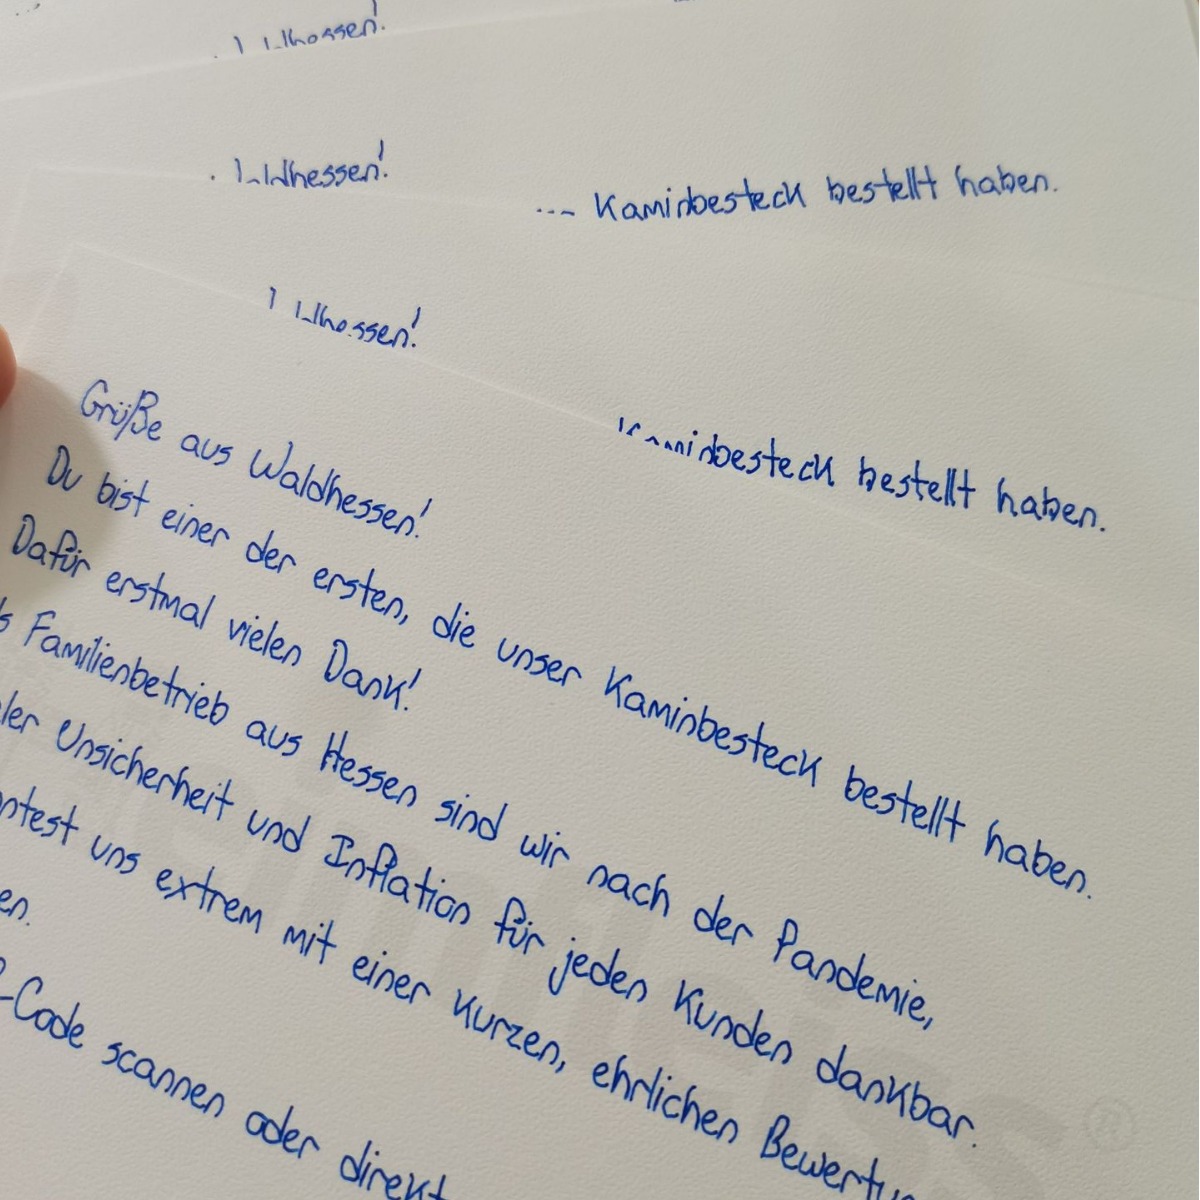 Waldhessen!
Kaminbesteck bestellt haben.
Kaminbesteck bestellt haben.
Grüße aus Waldhessen!
Du bist einer der ersten, die unser Kaminbesteck bestellt haben.
Dafür erstmal vielen Dank!
Familienbetrieb aus Hessen sind wir nach der Pandemie,
Unsicherheit und Inflation für jeden Kunden dankbar.
uns extrem mit einer kurzen, ehrlichen
-Code scannen oder direkt